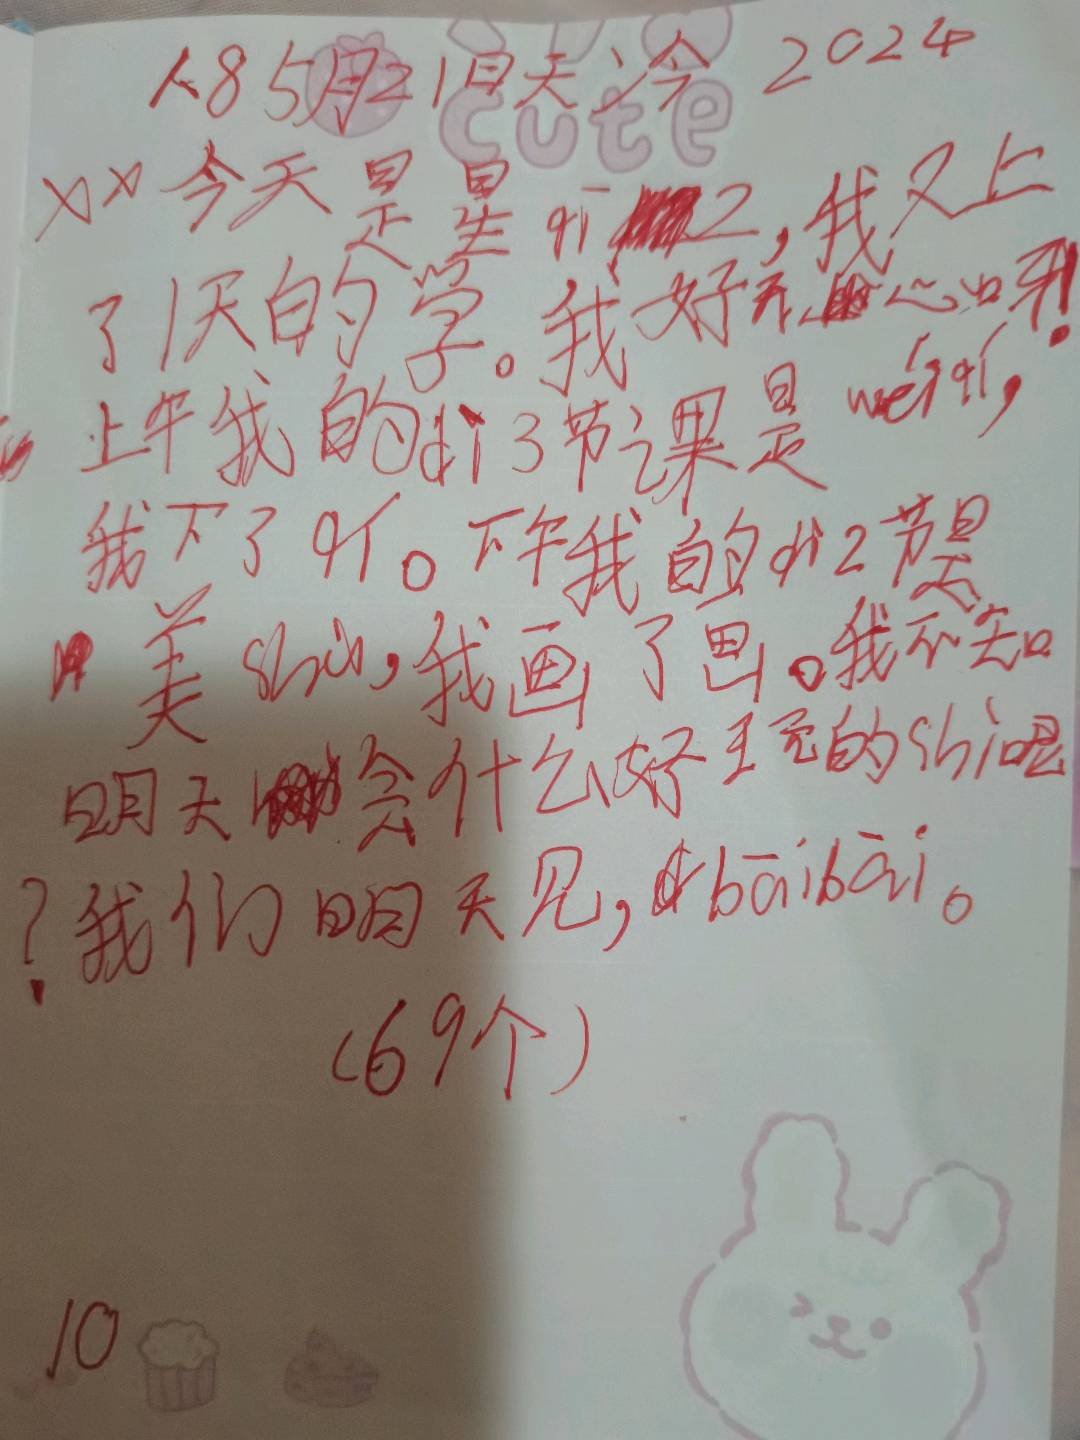 人8 5月21日天冷 2024
cute
xx今天是星qī2，我又上
了1天的学。我好开心呀！
上午我的dì3节课是wéiqí，
我下了qí。下午我的dì2节是
美shù，我画了画。我不知
明天会什么好玩的shì呢
？我们明天见，bāibāi。
（69个）
10